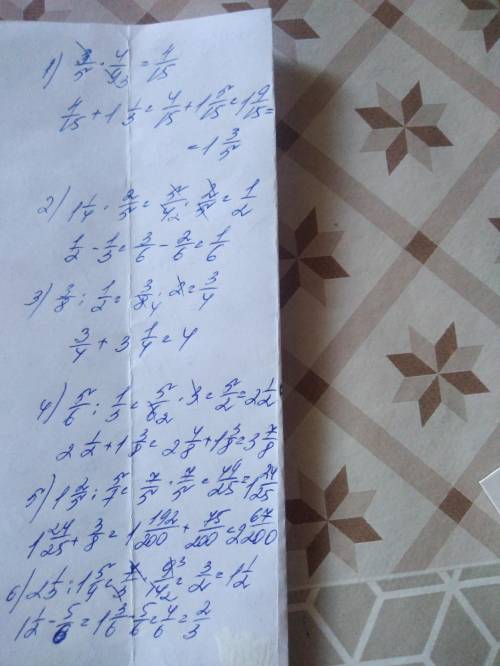 1) 3/5 · 4/9 3 = 4/15
4/15 + 1 1/3 = 4/15 + 1 5/15 = 1 9/15 =
= 1 3/5
2) 1 1/4 · 2/5 = 5/4 2 · 2/5 = 1/2
1/2 - 1/3 = 3/6 - 2/6 = 1/6
3) 3/8 : 1/2 = 3/8 4 · 2 = 3/4
3/4 + 3 1/4 = 4
4) 5/6 : 1/3 = 5/6 2 · 3 = 5/2 = 2 1/2
2 1/2 + 1 3/8 = 2 4/8 + 1 3/8 = 3 7/8
5) 1 2/5 : 5/7 = 7/5 · 7/5 = 49/25 = 1 24/25
1 24/25 + 3/8 = 1 192/200 + 75/200 = 2 67/200
6) 2 1/3 : 1 5/9 = 7/3 · 9 3/14 2 = 3/2 = 1 1/2
1 1/2 - 5/6 = 1 3/6 - 5/6 = 4/6 = 2/3